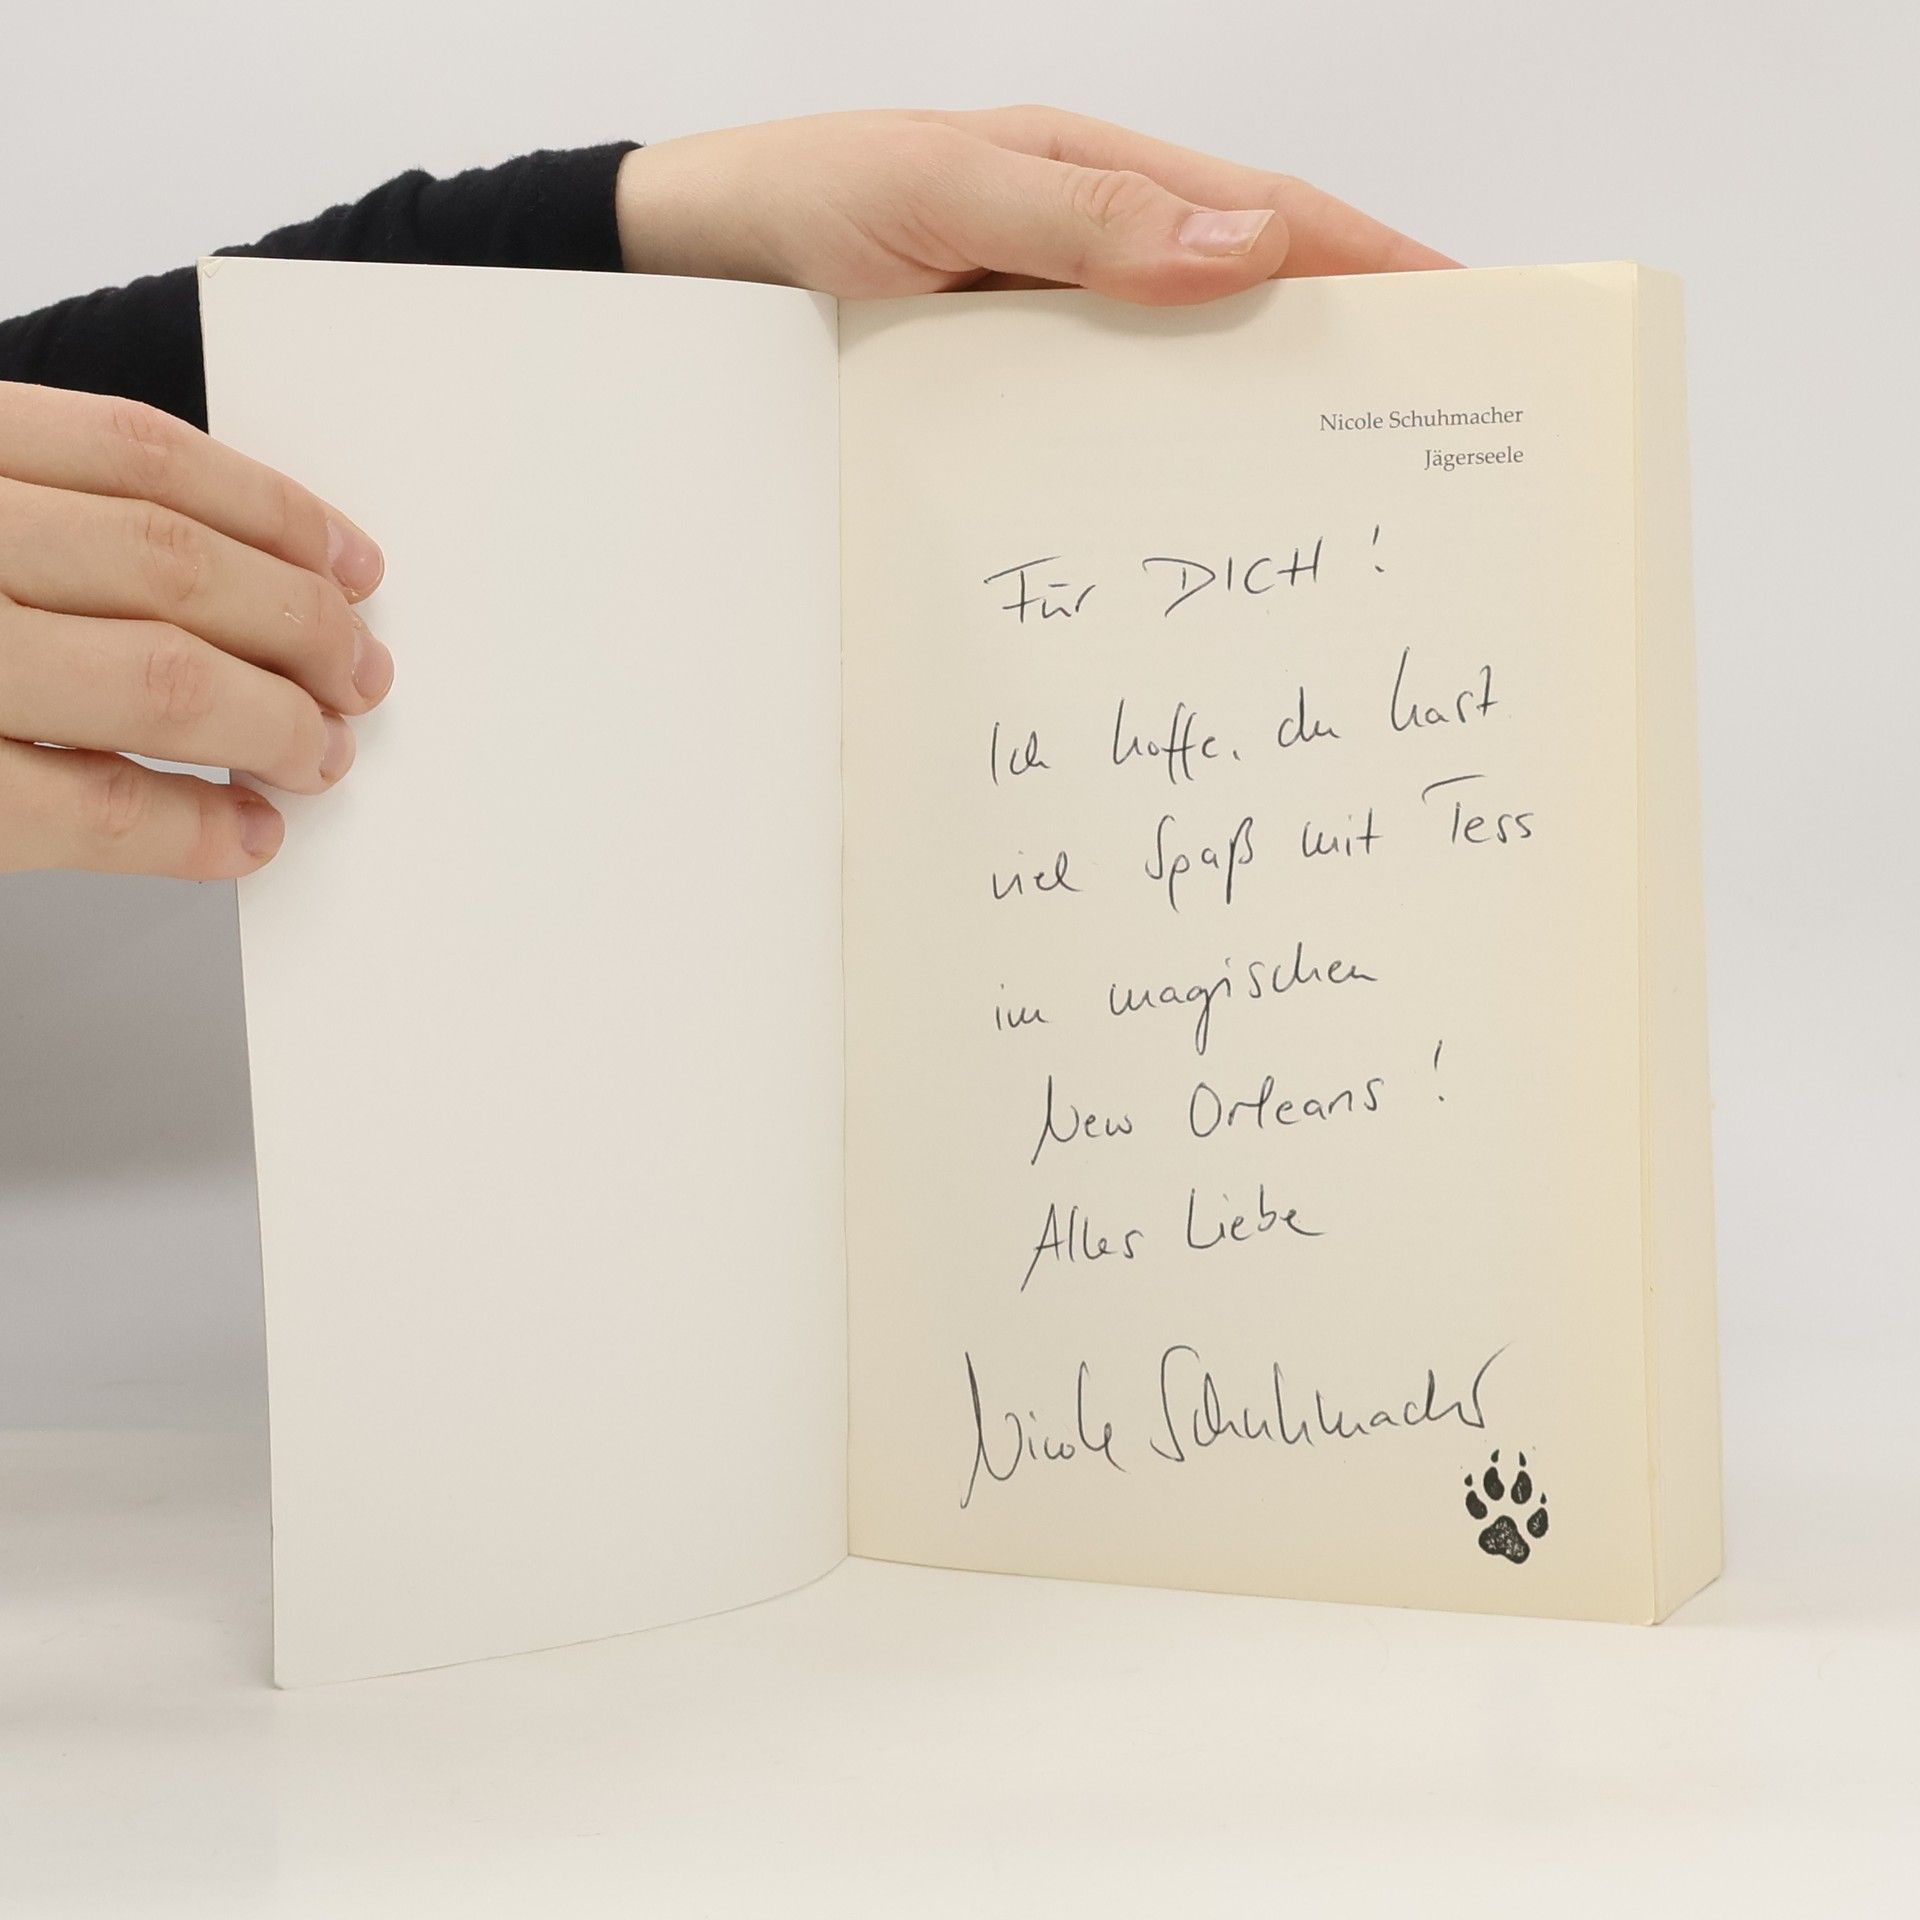 Nicole Schuhmacher
Jägerseele
Für DICH !
Ich hoffe, du hast
viel Spaß mit Tess
im magischen
New Orleans !
Alles Liebe
Nicole Schuhmacher